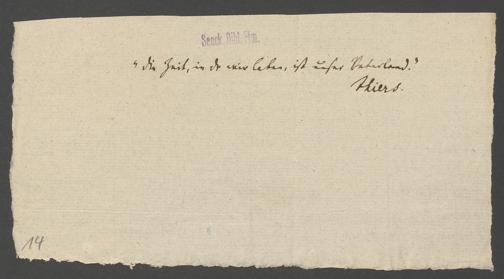 Senck. Bibl. Ffm.
"die Zeit, in der wir leben, ist unser Vaterland."
Thiers.
14